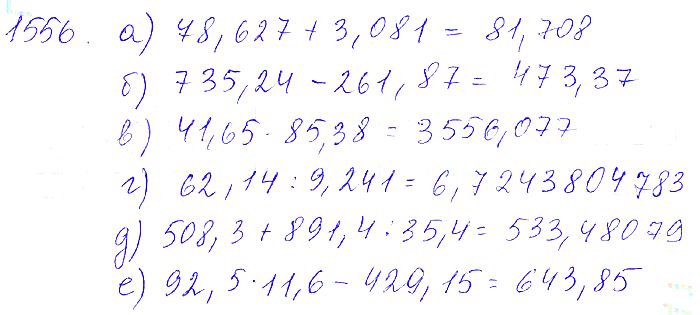 1556. а) 78,627 + 3,081 = 81,708
б) 735,24 - 261,87 = 473,37
в) 41,65 · 85,38 = 3556,077
г) 62,14 : 9,241 = 6,7243804783
д) 508,3 + 891,4 : 35,4 = 533,48079
е) 92,5 · 11,6 - 429,15 = 643,85